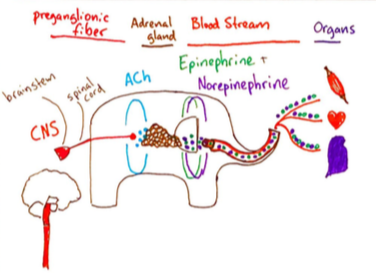 preganglionic
fiber
Adrenal
gland
Blood Stream
Organs
Epinephrine +
Norepinephrine
ACh
brainstem
spinal
cord
CNS